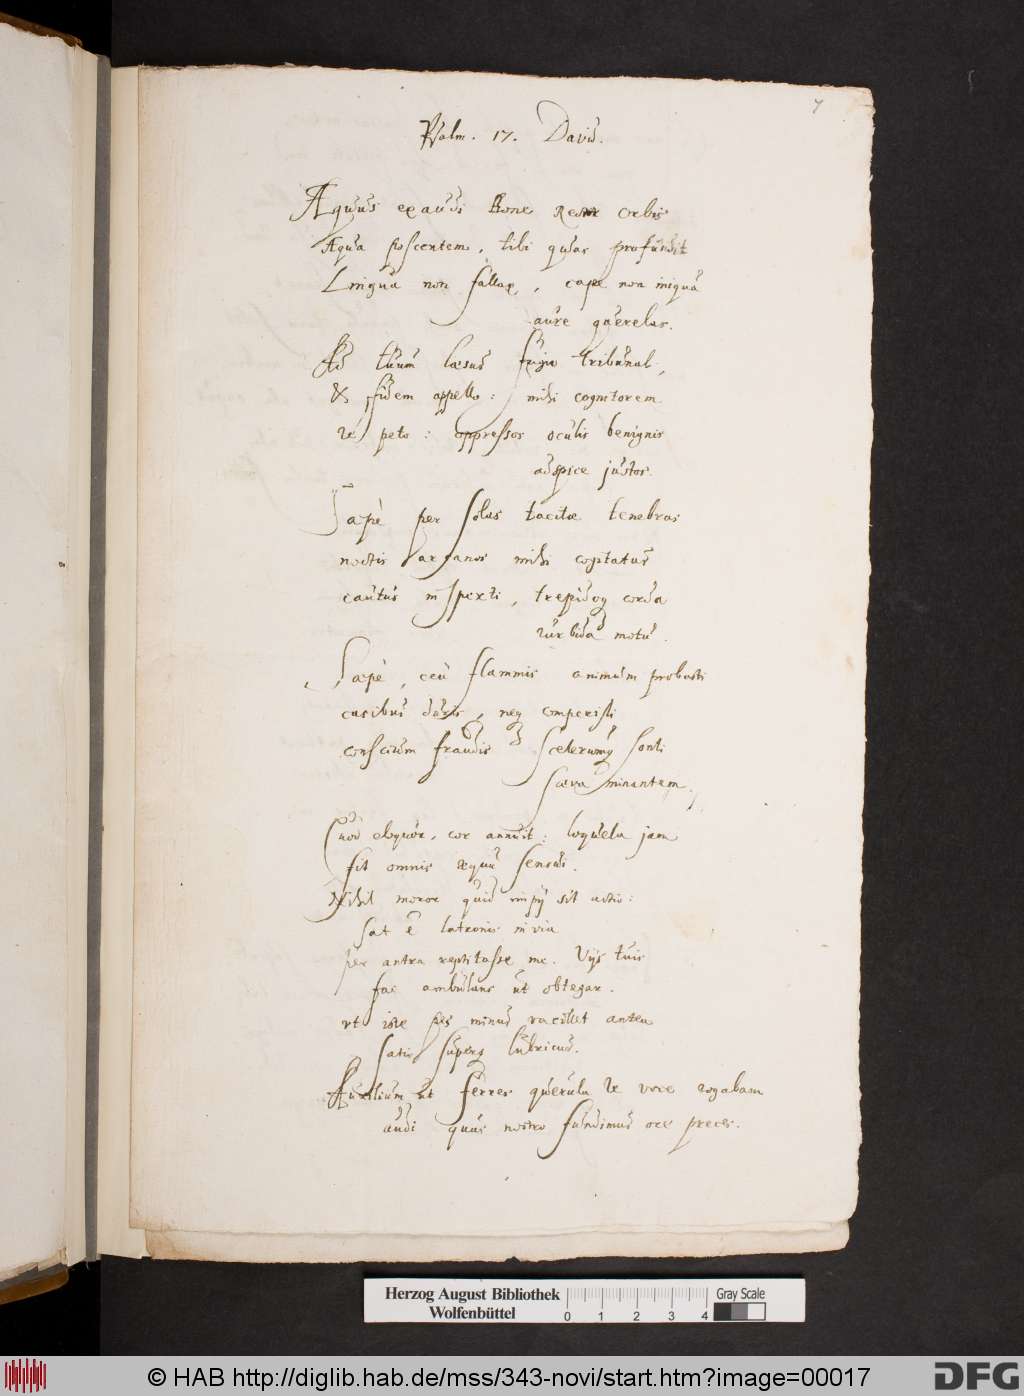 7
Psalm. 17. David.
Æquus exaudi Bone Rector orbis
Æqua poscentem, tibi quas profundit
Lingua non fallax, cape non iniqua
aure querelas.
Ad tuum læsus fugio tribunal,
& fidem appello: mihi cognitorem
te peto: oppressos oculis benignis
adspice justos.
Sæpè per solas tacitæ tenebras
noctis arcanos mihi coptatus
cautus insperti, trepidoq corda
turbida motu.
Sæpè, ceu flammis animum probasti
casibus duris, neq comperisti
conscium fraudis scelerumq sonti
sæva minantem.
Quod eloquor, cor annuit: loquela jam
fit omnis æqua sensui.
Nihil moror quid impij sit actio:
sat ē latronis in via
per antra reptitasse me. Vijs tuis
fac ambulans ut obtegar.
ut iste pes minus vacillet antea
satis superq lubricus.
Auxilium ut ferres querula te voce rogabam
audi quas nostro fundimus ore preces.
Herzog August Bibliothek
Wolfenbüttel
0 1 2 3 4
Gray Scale
© HAB http://diglib.hab.de/mss/343-novi/start.htm?image=00017
DFG